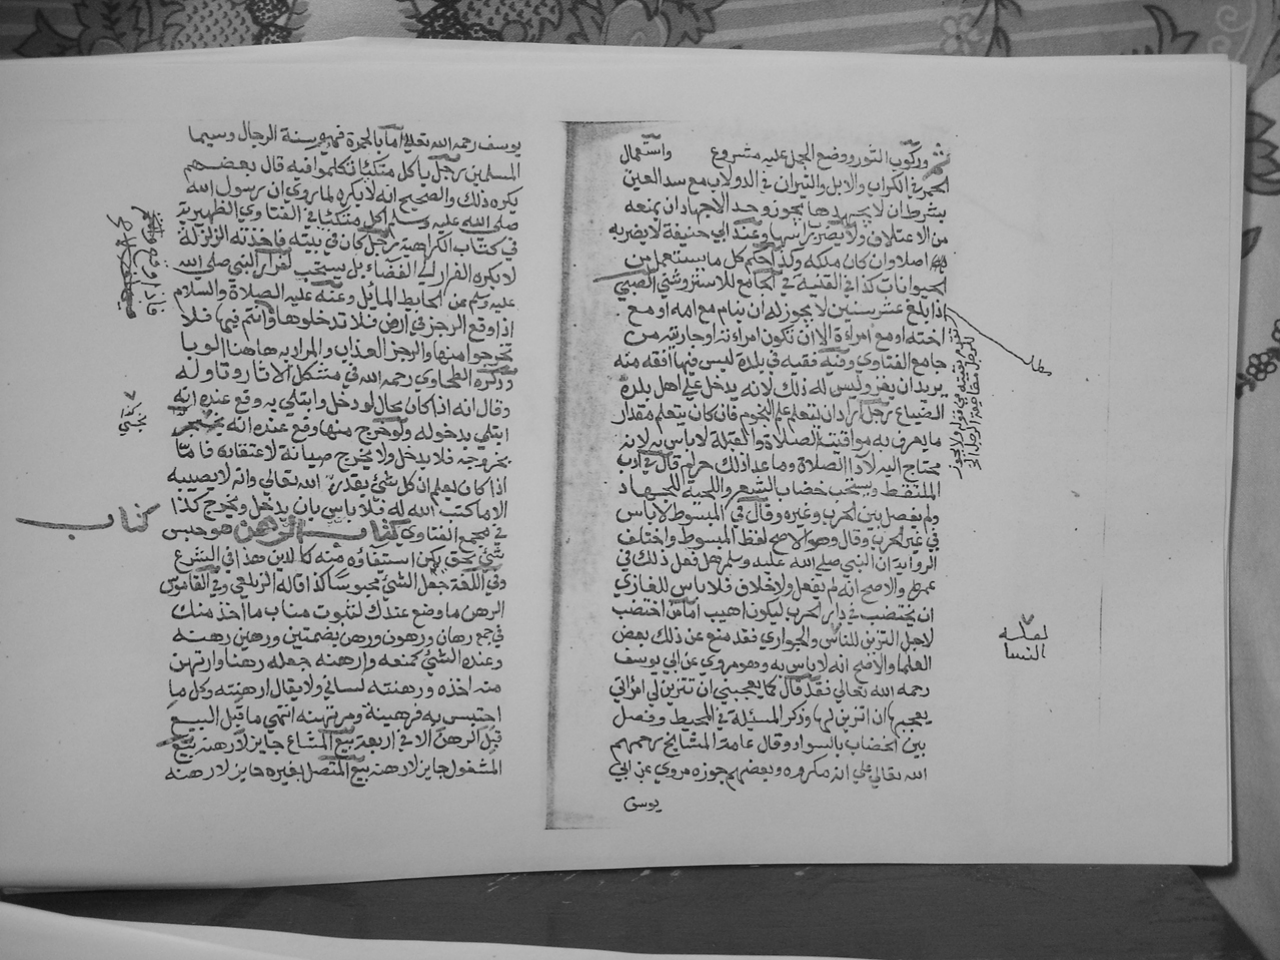 وركوب الثور ووضع الحمل عليه مشروع واستعمال
الحمر في الكراب والابل والثيران في الدولاب مع سد العين
بشرط ان لا يجهدها يجوز وحد الاجهاد ان يمنعه
من الاعتلاف ولا يضرب راسها وعند ابي حنيفة لا يضربه
اصلا وان كان ملكه وكذا حكم كل ما يستعمل من
الحيوانات كذا في القنية في الجامع للاستروشني الصبي
اذا بلغ عشر سنين لا يجوز له ان ينام مع امه او مع
اخته او مع امراة الا ان تكون امراته او جاريته من
جامع الفتاوي وفيه فقيه في بلدة ليس فيها افقه منه
يريد ان يغزو ليس له ذلك لانه يدخل علي اهل بلده
الضياع رجل اراد ان يتعلم علم النجوم فان كان يتعلم مقدار
ما يعرف به مواقيت الصلاة والقبلة لا باس به لانه
محتاج اليه لاداء الصلاة وما عدا ذلك حرام قال في ادب
الملتقط ويستحب خضاب الشعر واللحية للجهاد
ولم يفصل بين الحرب وغيره وقال في المبسوط لا باس
في غير الحرب وقال وهو الاصح لفظ المبسوط واختلف
الرواية ان النبي صلي الله عليه وسلم هل فعل ذلك في
عمره والاصح انه لم يفعل ولا خلاف فلا باس للغازي
ان يختضب في دار الحرب ليكون اهيب اما من اختضب
لاجل التزين للناس والجواري فقد منع عن ذلك بعض
العلما والاصح انه لا باس به وهو مروي عن ابي يوسف
رحمه الله تعالي فقد قال كما يعجبني ان تتزين لي امراتي
يعجبها ان اتزين لها وذكر المسئلة في المحيط وفصل
بين الخضاب بالسواد وقال عامة المشايخ رحمهم
الله تعالي علي انه مكروه وبعضهم جوزه مروي عن ابي
يوسف
لعله
النسا
يوسف رحمه الله تعالي اما بالحمرة فهو سنة الرجال وسيما
المسلمين رجل ياكل متكئا تكلموا فيه قال بعضهم
يكره ذلك والصحيح انه لا يكره لما روي ان رسول الله
صلي الله عليه وسلم اكل متكئا في الفتاوي الظهيرية
في كتاب الكراهية رجل كان في بيته فاخذته الزلزلة
لا يكره الفرار الي الفضاء بل يستحب لفرار النبي صلي الله
عليه وسلم عن الحايط المائل وعنه عليه الصلاة والسلام
اذا وقع الرجز في ارض فلا تدخلوها وانتم فيها فلا
تخرجوا منها والرجز العذاب والمراد به هاهنا الوبا
وذكره الطحاوي رحمه الله في مشكل الاثار وتاوله
وقال انه اذا كان بحال لو دخل وابتلي به وقع عنده انه
ابتلي بدخوله ولو خرج منها وقع عنده انه
بخروجه فلا يدخل ولا يخرج صيانة لاعتقاده فاما
اذا كان يعلم ان كل شيء بقدر الله تعالي وانه لا يصيبه
الا ما كتب الله له فلا باس بان يدخل ويخرج كذا
في مجمع الفتاوي كتاب الرهن هو حبس
شيء بحق يمكن استيفاؤه منه كالدين هذا في الشرع
وفي اللغة جعل الشيء محبوسا كذا قاله الزيلعي وفي القاموس
الرهن ما وضع عندك لتنوب مناب ما اخذ منك
في جمع رهان ورهون ورهن بضمتين ورهين رهنه
وعنده الشئ كمنعه وارهنه جعله رهنا وارتهن
منه اخذه ورهنته لساني ولا يقال ارهنته وكل ما
احتبس به فرهينة ومرتهنه انتهي ما قبل البيع
قبل الرهن الا في اربعة بيع المشاع جايز لا رهنه بيع
المشغول جايز لا رهنه بيع المتصل بغيره جايز لا رهنه
كتاب